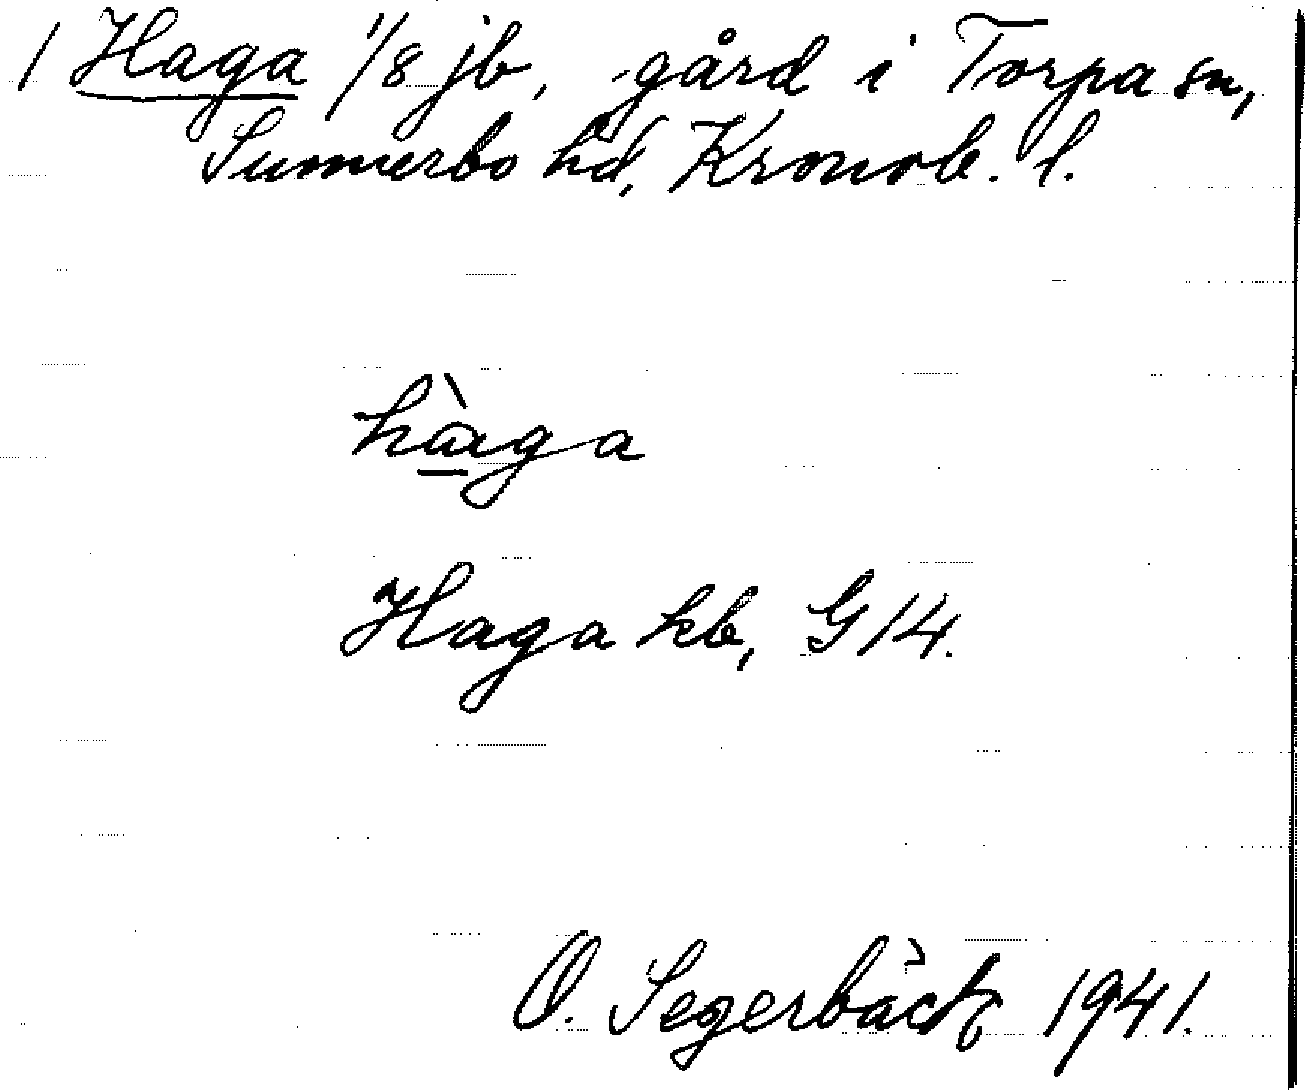 1 Haga 1/8 jb, gård i Torpa sn,
Sunnerbo hd, Kronob. l.
hàga
Haga kb, G 14.
O. Segerbäck 1941.